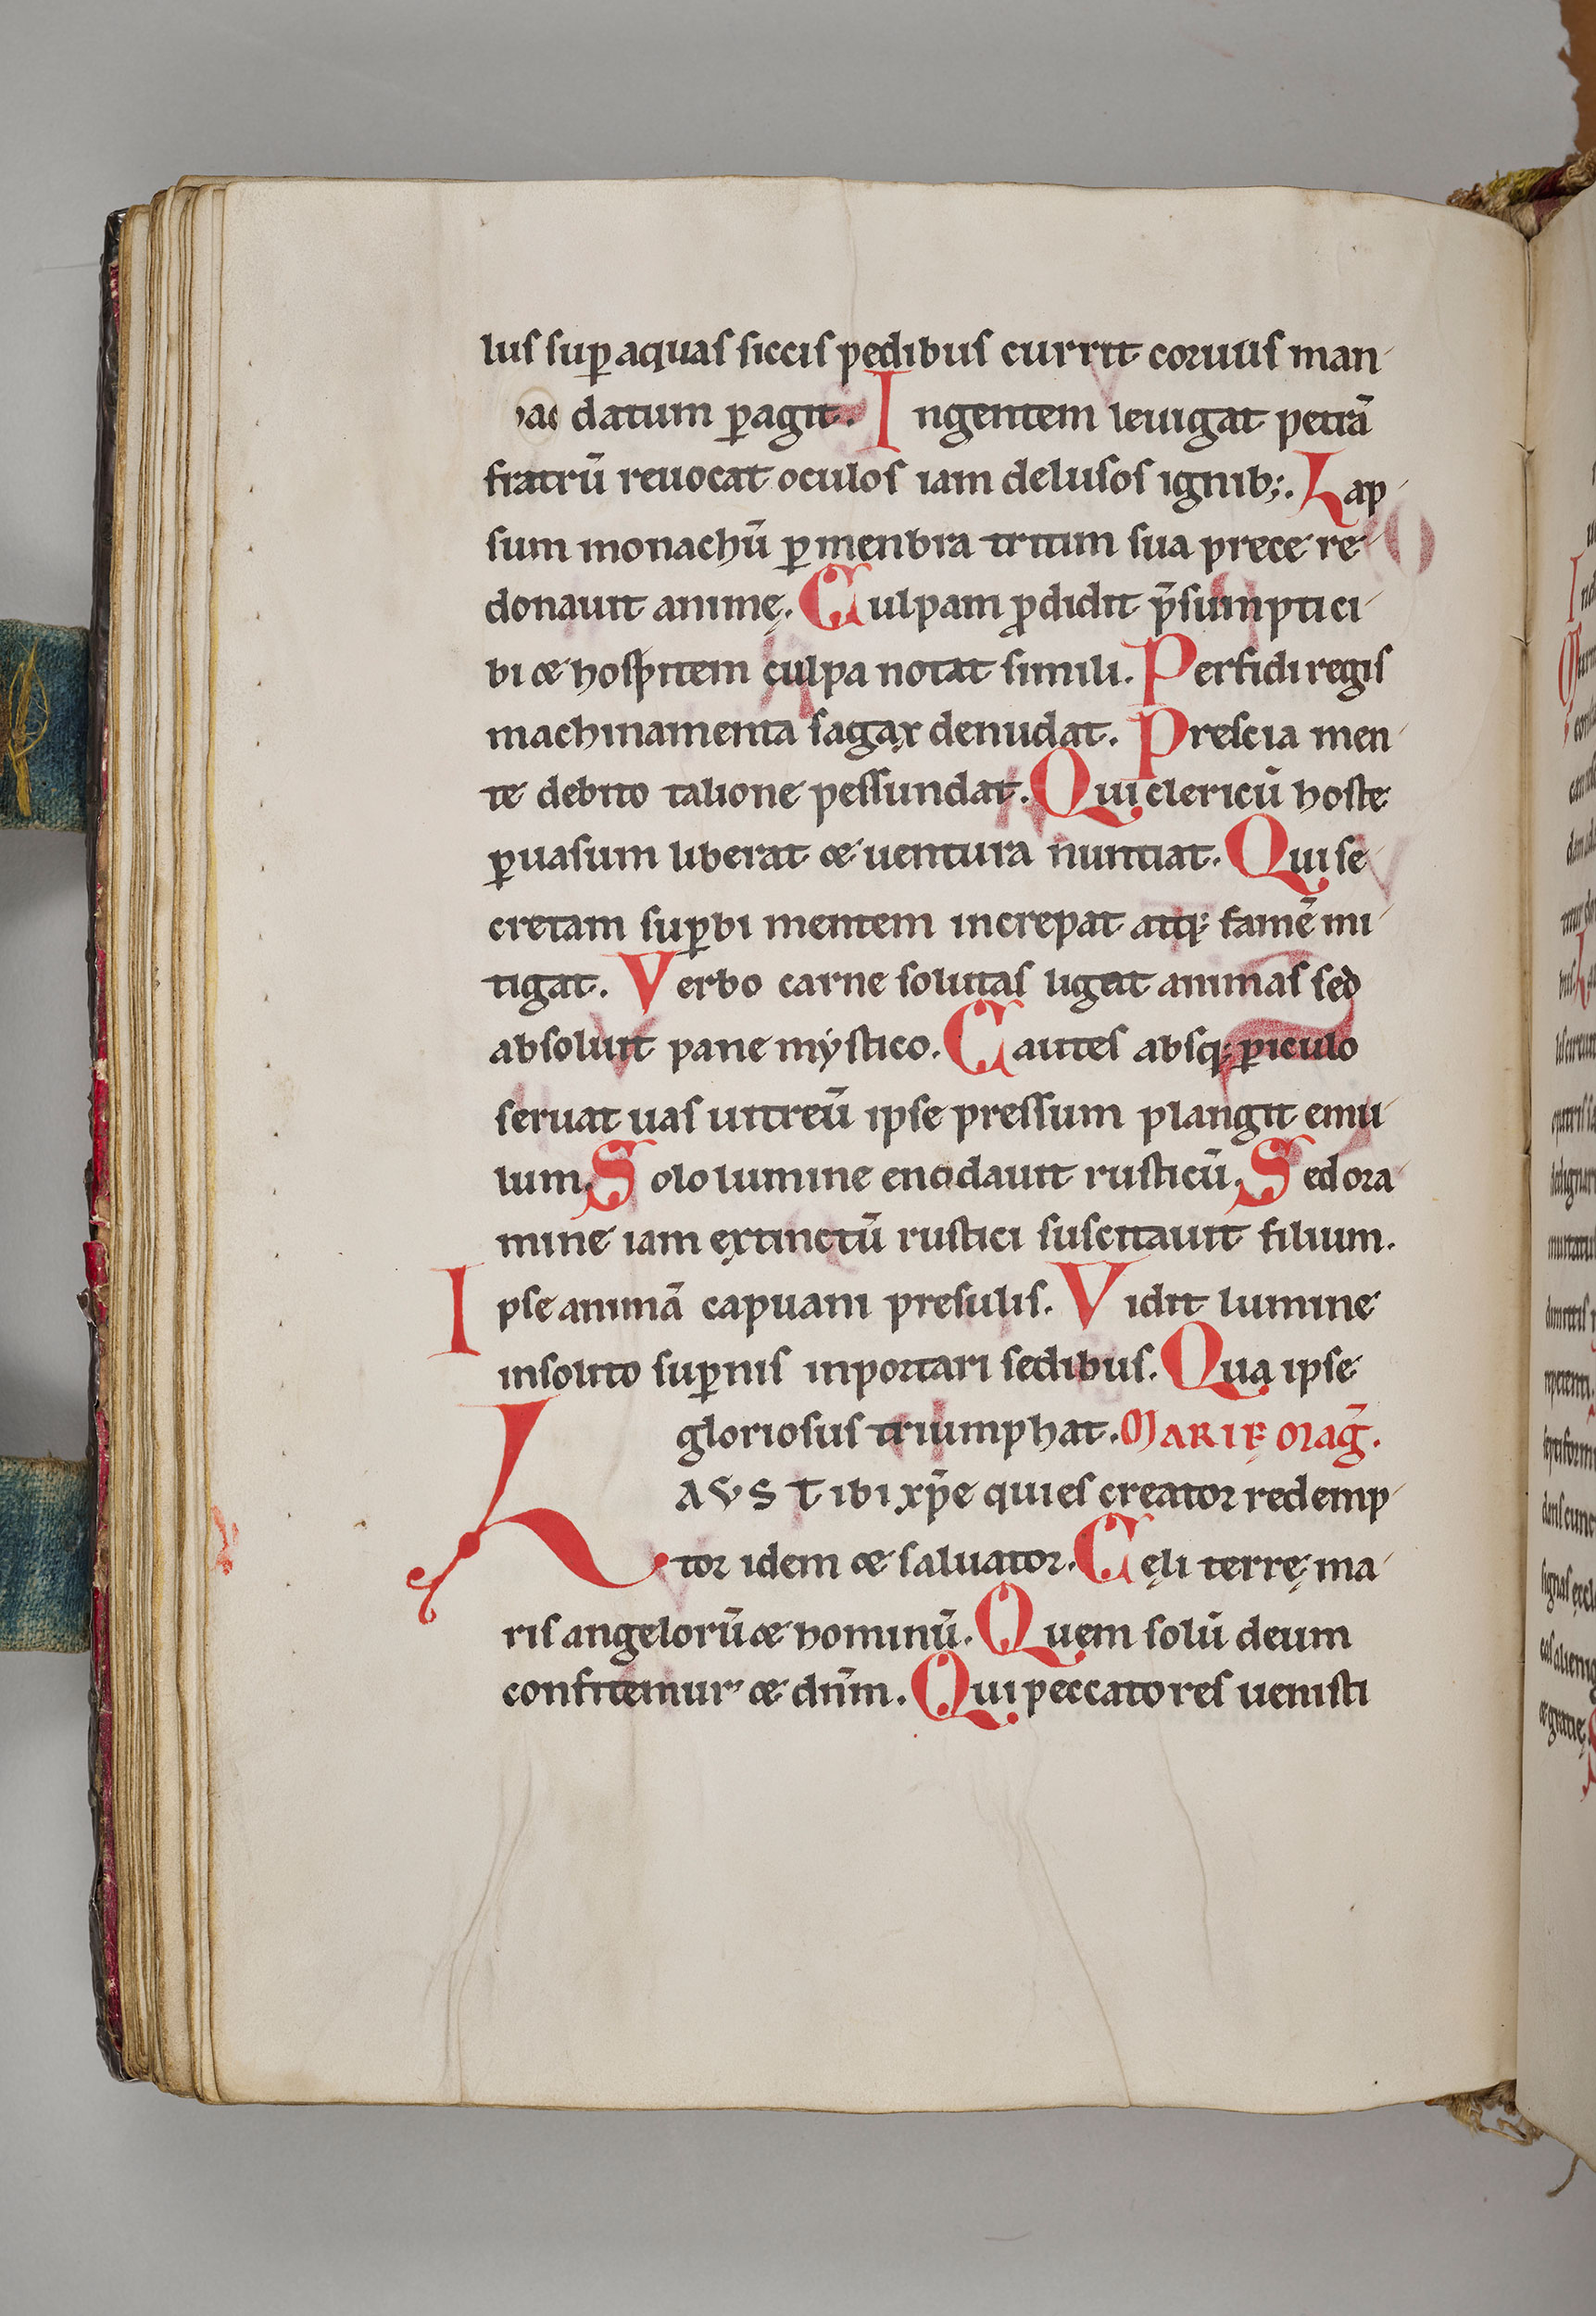 lus sup aquas siccis pedibus currit coruus man
datum pagit. Ingentem leuigat petrā
fratrū reuocat oculos iam delusos ignib;. Lap
sum monachū p menbra tritim sua prece re
donauit animę. Culpam pdidit p̄sumpti ci
bi & hospitem culpa notat simili. Perfidi regis
machinamenta sagax denudat. Prescia men
te debito talione pessundat. Qui clericū hoste
puasum liberat & uentura nuntiat. Qui se
cretam supbi mentem increpat atq; famē mi
tigat. Verbo carne solutas ligat animas sed
absoluit pane mystico. Cautes absq; piculo
seruat uas uitreū ipse pressum plangit emu
lum. Solo lumine enodauit rusticū. Sed ora
mine iam extinctū rustici suscitauit filium.
Ipse animā capuani presulis. Vidit lumine
insolito supnis inportari sedibus. Qua ipse
gloriosus triumphat. MARIĘ mag̅.
LAVS Tibi xp̄e qui es creator redemp
tor idem & saluator. Cęli terrę ma
ris angelorū & hominū. Quem solū deum
confitemur & dn̄m. Qui peccatores uenisti